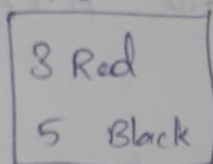 3 Red
5 Black